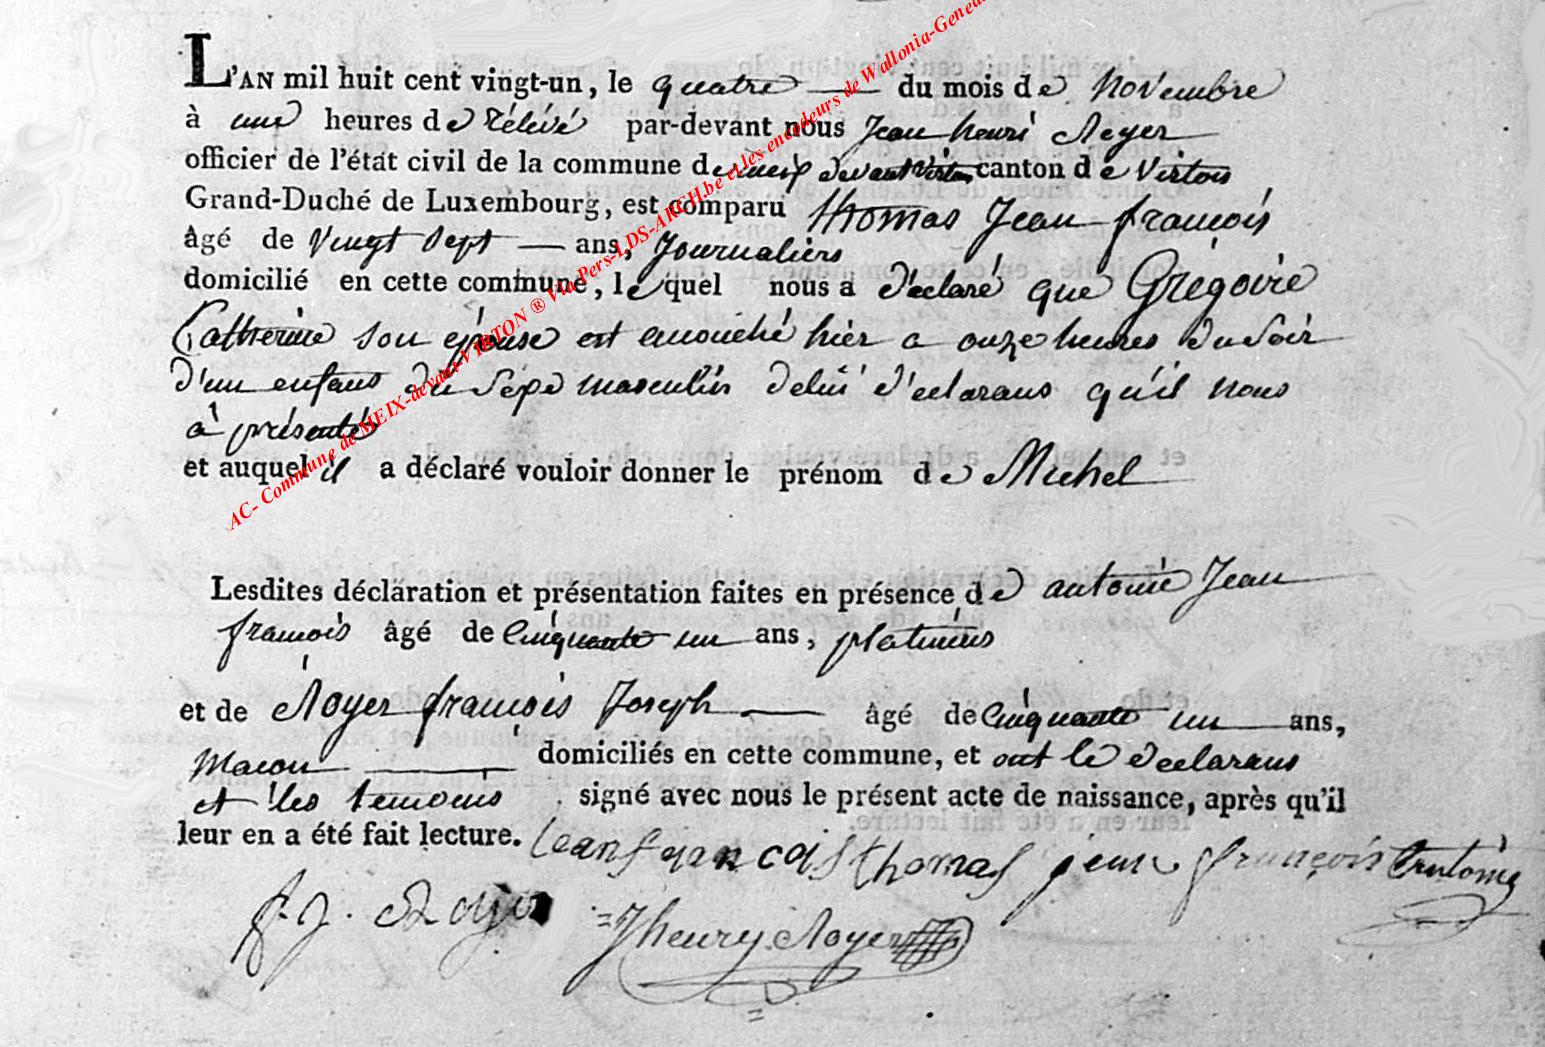 L'AN mil huit cent vingt-un, le quatre du mois de Novembre
à une heures de rélévé par-devant nous Jean henri Noyer
officier de l'état civil de la commune de meix devant Virton canton de Virton
Grand-Duché de Luxembourg, est comparu thomas Jean françois
âgé de Vingt Sept ans, Journaliers
domicilié en cette commune, lequel nous a déclaré que Grégoire
Catherine son épouse est accouché hier a onze heures du Soir
d'un enfans du Sexe masculin de lui déclarans qu'il nous
à présenté
et auquel il a déclaré vouloir donner le prénom de Michel
Lesdites déclaration et présentation faites en présence de antoine Jean
françois âgé de Cinquante un ans, platineurs
et de Noyer françois Joseph âgé de Cinquante un ans,
Macon domiciliés en cette commune, et ont le déclarans
et les temoins signé avec nous le présent acte de naissance, après qu'il
leur en a été fait lecture. Jean francois thomas jean françois Antoine
f. j. Noyer Jhenry Noyer
AC- Commune de MEIX-devant-VIRTON ® Via Pers-LDS-ARCH.be et les encodeurs de Wallonia-Geneal